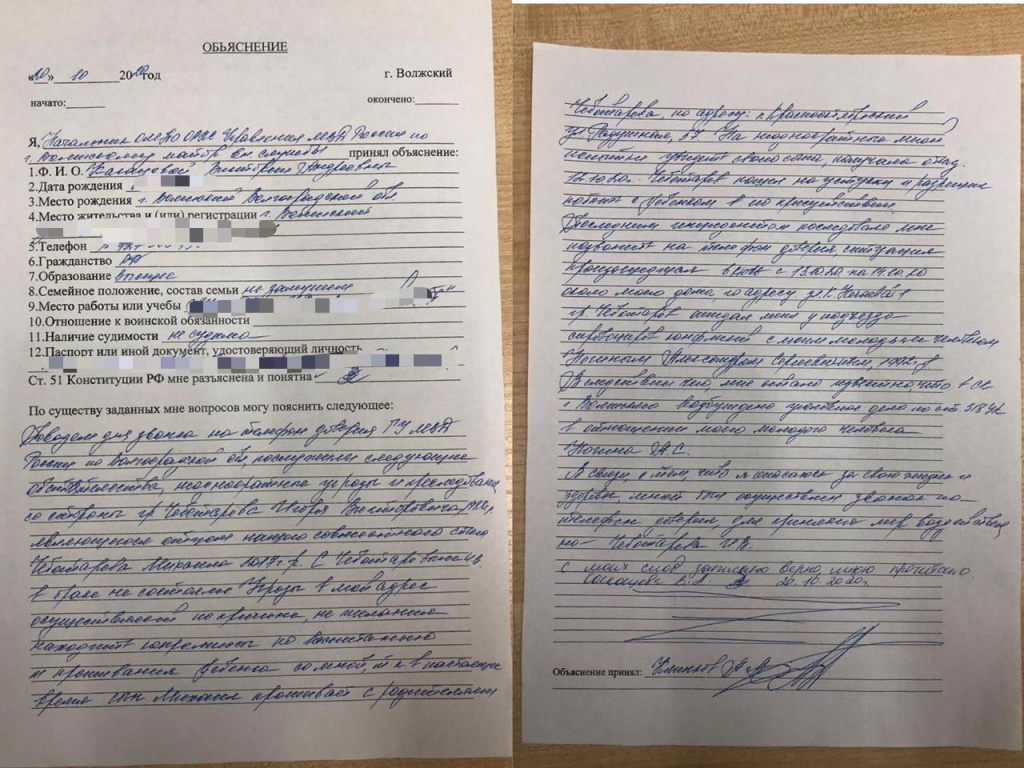 ОБЪЯСНЕНИЕ
«20» 10 2020 год г. Волжский
начато: окончено:
Я, Начальник России по
г. Волжскому майор вн службы принял объяснение:
1.Ф. И. О. Виктории Андреевны
2.Дата рождения
3.Место рождения г. Волжский Волгоградской обл.
4.Место жительства и (или) регистрации г. Волжский
5.Телефон
6.Гражданство РФ
7.Образование высшее
8.Семейное положение, состав семьи не замужем
9.Место работы или учебы
10.Отношение к воинской обязанности
11.Наличие судимости не судима
12.Паспорт или иной документ, удостоверяющий личность
Ст. 51 Конституции РФ мне разъяснена и понятна
По существу заданных мне вопросов могу пояснить следующее:
Поводом для звонка на телефон доверия ГУ МВД
России по Волгоградской об, послужили следующие
обстоятельства, неоднократные угрозы и преследования
со стороны гр Чеботарева Игоря Викторовича,
являющегося отцом нашего совместного сына
Чеботарева Михаила 2017г.р. С Чеботаревым
в браке не состояли. Угрозы в мой адрес
осуществляются по причине, не желания
находить компромиссы по воспитанию
и проживания ребенка со мной, т.к в настоящее
время сын Михаил проживает с родителями
Чеботарева, по адресу: п. Краснооктябрьский
ул. На неоднократные мои
попытки увидеть своего сына, получала отказ.
12.10.20г. Чеботарев пошел на уступки и разрешил
побыть с ребенком в его присутствии.
Последним инцидентом последовало мне
позвонить на телефон доверия, ситуация
произошедшая в ночь с 13.10.20 на 14.10.20
около моего дома, по адресу
гр. Чеботарев ожидал меня у подъезда
спровоцировав конфликт с моим молодым человеком
Ногиным Александром Сергеевичем, 1992г.р
В следствии чего, мне стало известно, что в СК
г. Волжского возбуждено уголовное дело по ст. 318 УК
в отношении моего молодого человека
Ногина А.С.
В связи, с тем, что я опасаюсь за свою жизнь и
здоровье, мной был осуществлен звонок по
телефону доверия, для принятия мер воздействия
на Чеботарева И.В.
С моих слов записано верно, мною прочитано.
20.10.2020г.
Объяснение принял: